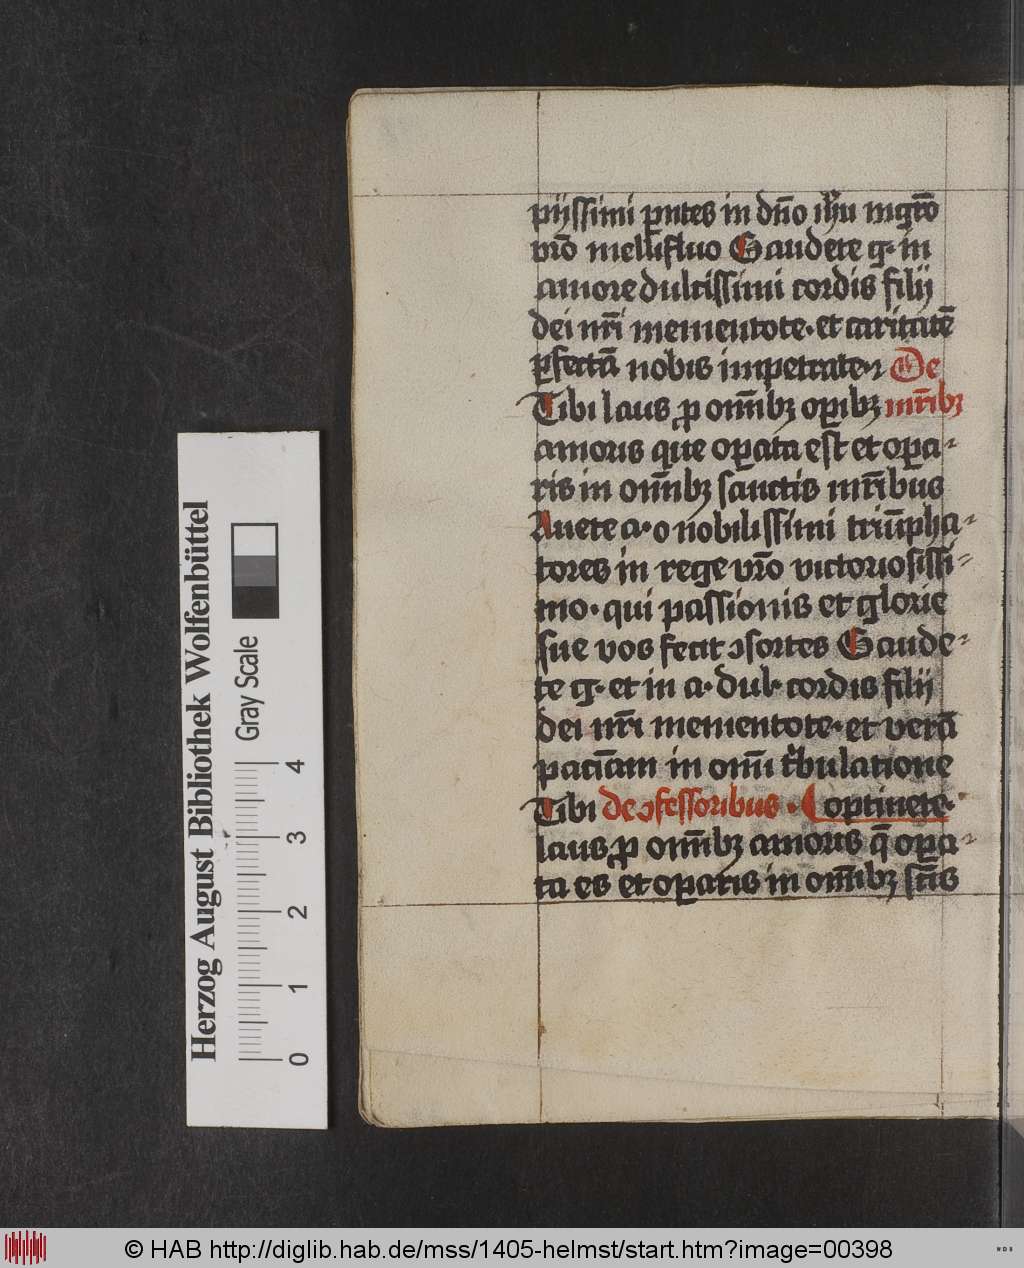 pijssimi pntes in dño ihu mgr̄o
vrō mellifluo Gaudete g· in
amore dulcissimi cordis filij
dei nr̄i mementote· et caritatē
ꝑfectā nobis impetrate· De
Tibi laus ꝓ om̄ibꝫ oꝑibꝫ mr̄ibꝫ
amoris que oꝑata est et oꝑa-
ris in om̄ibꝫ sanctis mr̄ibus
Auete a· o nobilissimi triūpha-
tores in rege vrō victoriosissi-
mo· qui passionis et glorie
sue vos fecit ꝯsortes Gaude-
te g· et in a· dul· cordis filij
dei nr̄i mementote· et verā
paciam in om̄i tⁱbulatione
Tibi de ꝯfessoribus · optinete·
laus ꝓ om̄ibꝫ amoris q̄ oꝑa-
ta es et oꝑaris in om̄ibꝫ scīs
Herzog August Bibliothek Wolfenbüttel
Gray Scale
0 1 2 3 4
© HAB http://diglib.hab.de/mss/1405-helmst/start.htm?image=00398